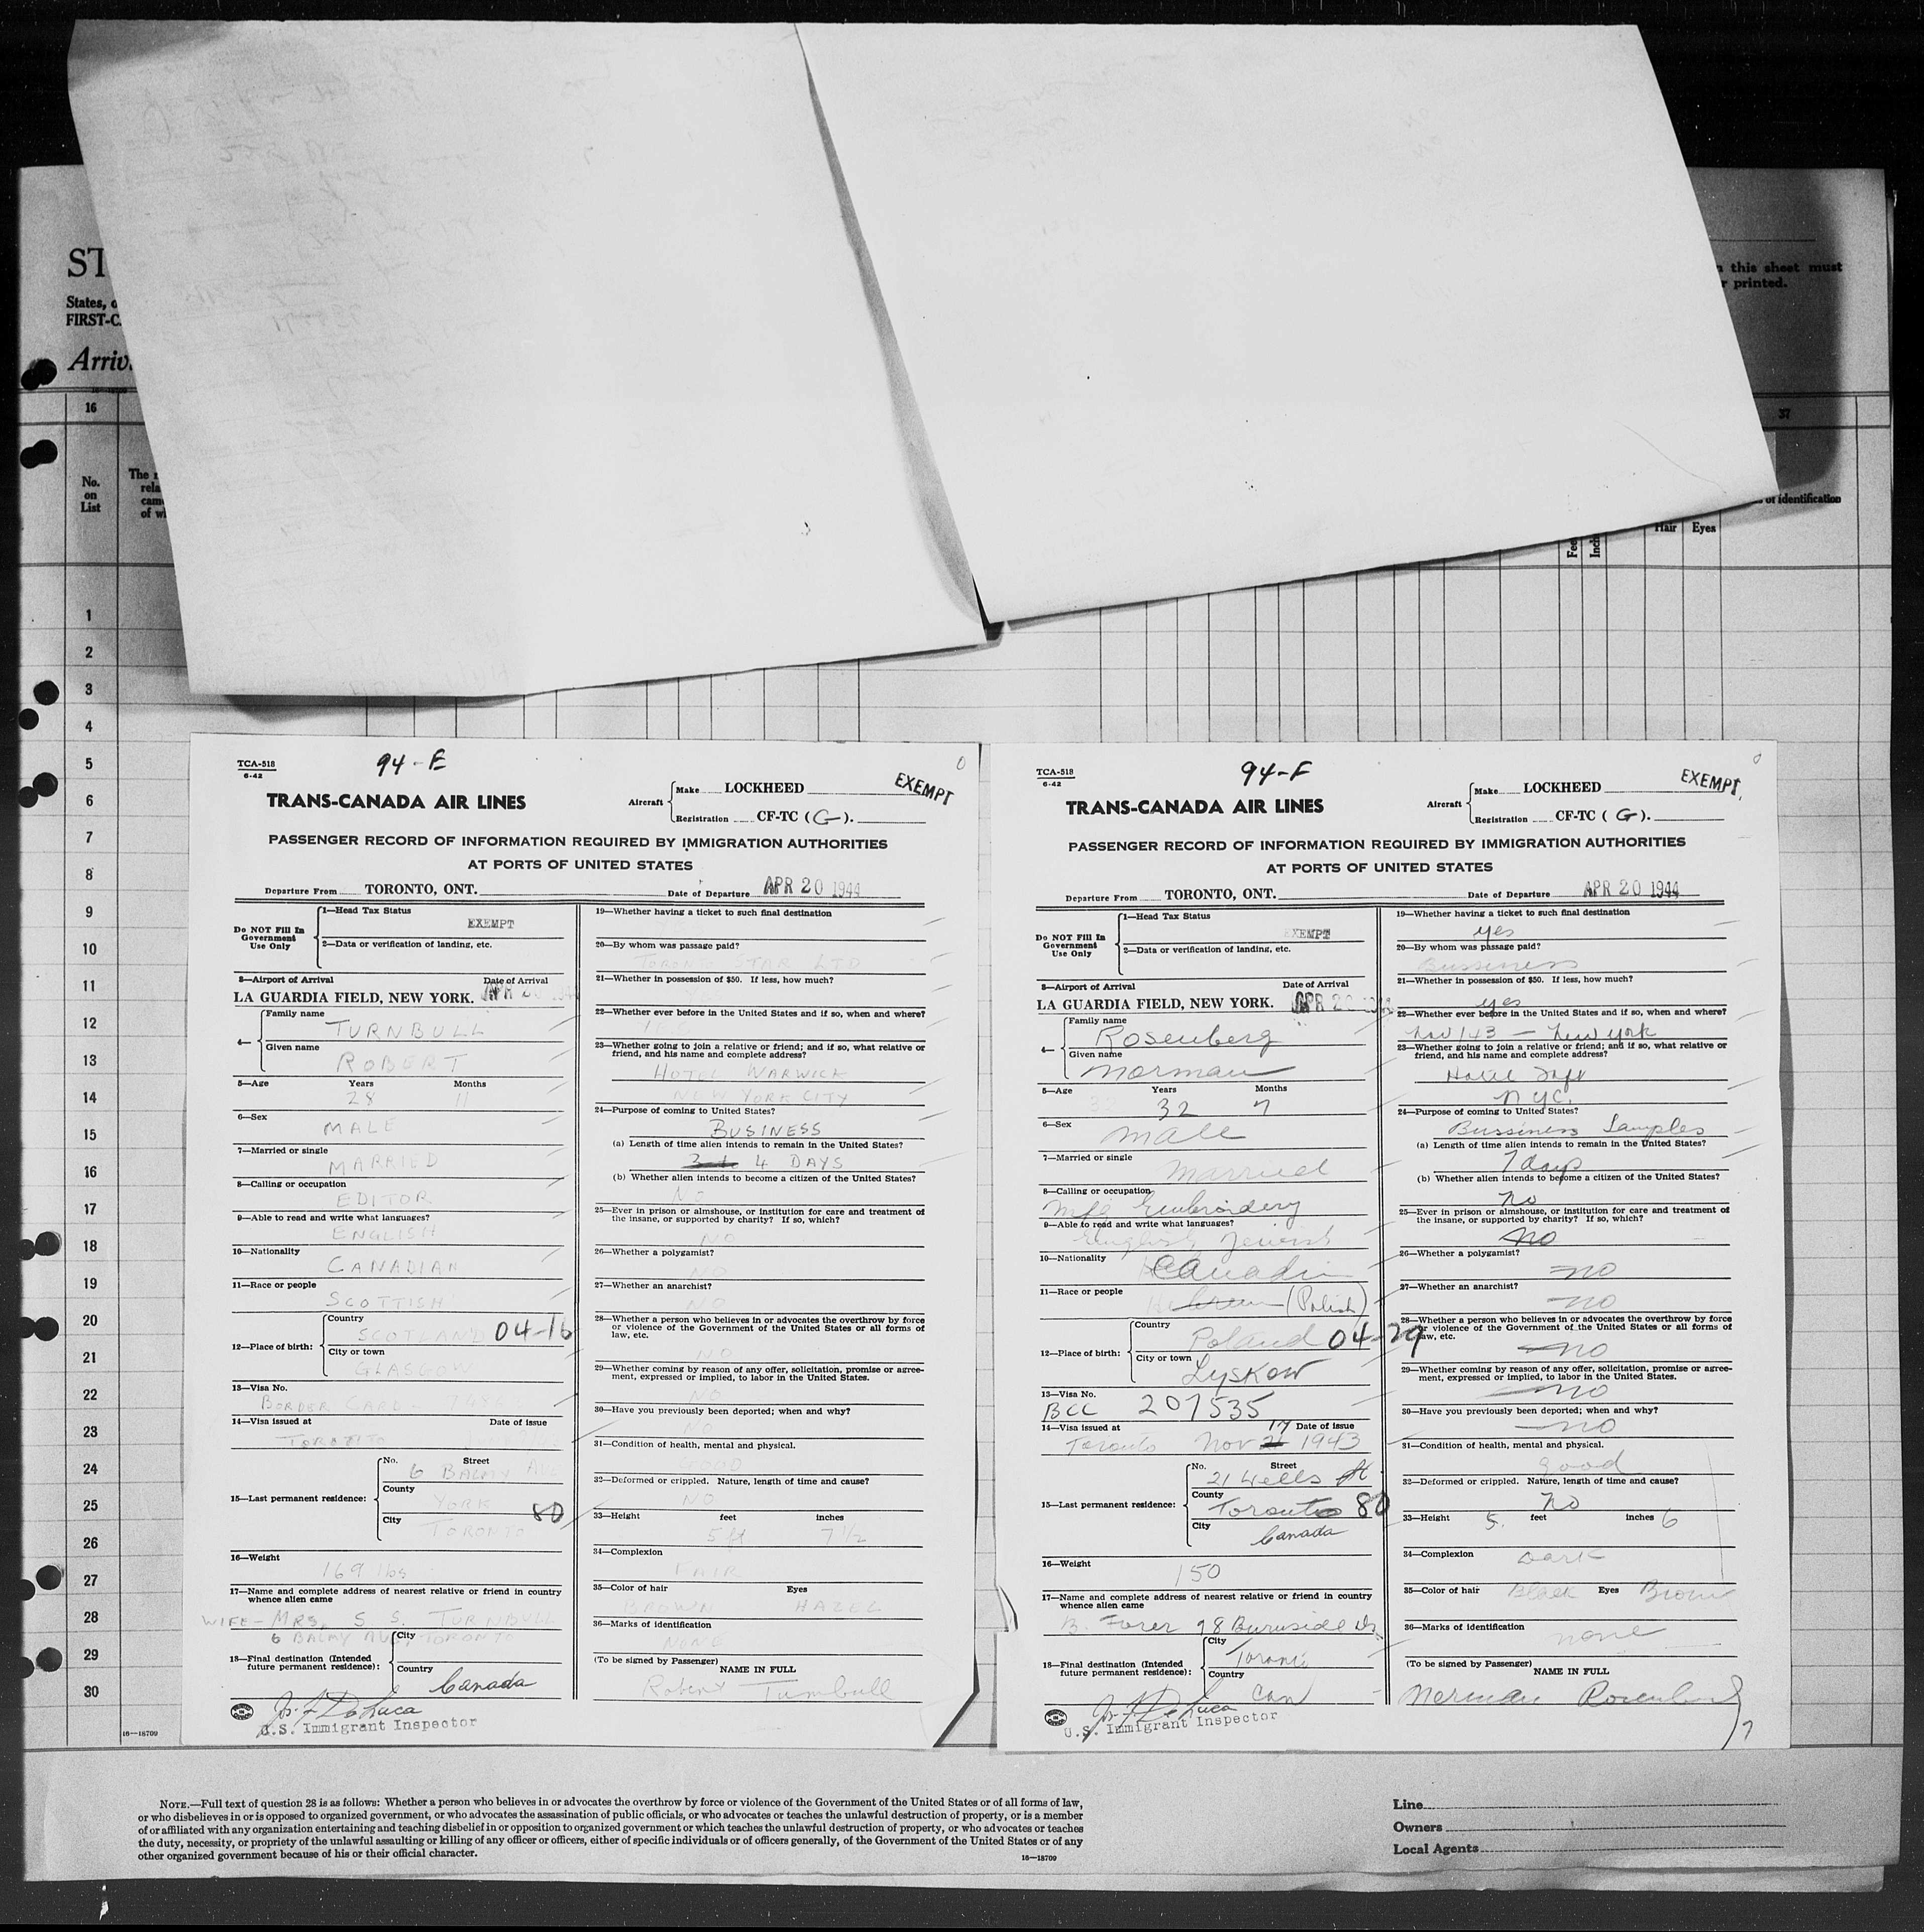 ST
States, o
FIRST-C
Arriv
n this sheet must
r printed.
16
37
No.
on
List
The
rela
cam
of w
of identification
Hair Eyes
Feet
Inch
1
2
3
4
5
6
7
8
9
10
11
12
13
14
15
16
17
18
19
20
21
22
23
24
25
26
27
28
29
30
16—18709
TCA-518
6-42
94-E
TRANS-CANADA AIR LINES
Aircraft
Make LOCKHEED
Registration CF-TC (G).
EXEMPT
PASSENGER RECORD OF INFORMATION REQUIRED BY IMMIGRATION AUTHORITIES
AT PORTS OF UNITED STATES
Departure From TORONTO, ONT. Date of Departure APR 20 1944
Do NOT Fill In
Government
Use Only
1—Head Tax Status
EXEMPT
2—Data or verification of landing, etc.
3—Airport of Arrival Date of Arrival
LA GUARDIA FIELD, NEW YORK. APR 20 1944
4—
Family name
TURNBULL
Given name
ROBERT
5—Age Years Months
28 11
6—Sex
MALE
7—Married or single
MARRIED
8—Calling or occupation
EDITOR
9—Able to read and write what languages?
ENGLISH
10—Nationality
CANADIAN
11—Race or people
SCOTTISH
12—Place of birth:
Country
SCOTLAND 04-16
City or town
GLASGOW
13—Visa No.
BORDER CARD
14—Visa issued at Date of issue
TORONTO
15—Last permanent residence:
No. Street
6 BALMY AV
County
YORK
City
TORONTO 80
16—Weight
169 lbs
17—Name and complete address of nearest relative or friend in country
whence alien came
WIFE - MRS. S. S. TURNBULL
6 BALMY AVE, TORONTO
18—Final destination (Intended
future permanent residence):
City
Country
Canada
Jos. F. DeLuca
U.S. Immigrant Inspector
19—Whether having a ticket to such final destination
20—By whom was passage paid?
TORONTO STAR LTD
21—Whether in possession of $50. If less, how much?
22—Whether ever before in the United States and if so, when and where?
23—Whether going to join a relative or friend; and if so, what relative or
friend, and his name and complete address?
HOTEL WARWICK
NEW YORK CITY
24—Purpose of coming to United States?
BUSINESS
(a) Length of time alien intends to remain in the United States?
4 DAYS
(b) Whether alien intends to become a citizen of the United States?
NO
25—Ever in prison or almshouse, or institution for care and treatment of
the insane, or supported by charity? If so, which?
NO
26—Whether a polygamist?
NO
27—Whether an anarchist?
NO
28—Whether a person who believes in or advocates the overthrow by force
or violence of the Government of the United States or all forms of
law, etc.
NO
29—Whether coming by reason of any offer, solicitation, promise or agree-
ment, expressed or implied, to labor in the United States.
NO
30—Have you previously been deported; when and why?
NO
31—Condition of health, mental and physical.
GOOD
32—Deformed or crippled. Nature, length of time and cause?
NO
33—Height feet inches
5 ft 7 1/2
34—Complexion
FAIR
35—Color of hair Eyes
BROWN HAZEL
36—Marks of identification
NONE
(To be signed by Passenger)
NAME IN FULL
Robert Turnbull
TCA-518
6-42
94-F
TRANS-CANADA AIR LINES
Aircraft
Make LOCKHEED
Registration CF-TC (G).
EXEMPT
PASSENGER RECORD OF INFORMATION REQUIRED BY IMMIGRATION AUTHORITIES
AT PORTS OF UNITED STATES
Departure From TORONTO, ONT. Date of Departure APR 20 1944
Do NOT Fill In
Government
Use Only
1—Head Tax Status
EXEMPT
2—Data or verification of landing, etc.
3—Airport of Arrival Date of Arrival
LA GUARDIA FIELD, NEW YORK. APR 20 1944
4—
Family name
Rosenberg
Given name
Norman
5—Age Years Months
32 7
6—Sex
Male
7—Married or single
Married
8—Calling or occupation
Mfg Embroidery
9—Able to read and write what languages?
English Jewish
10—Nationality
Canadian
11—Race or people
Hebrew (Polish)
12—Place of birth:
Country
Poland 04-29
City or town
Lyskow
13—Visa No.
BCC 207535
14—Visa issued at Date of issue
Toronto Nov 17 1943
15—Last permanent residence:
No. Street
21 Wells St
County
Toronto 80
City
Canada
16—Weight
150
17—Name and complete address of nearest relative or friend in country
whence alien came
B. Forer 98 Burnside Dr
18—Final destination (Intended
future permanent residence):
City
Toronto
Country
Can
Jos. F. DeLuca
U.S. Immigrant Inspector
19—Whether having a ticket to such final destination
yes
20—By whom was passage paid?
Bussiness
21—Whether in possession of $50. If less, how much?
yes
22—Whether ever before in the United States and if so, when and where?
Nov/43 — New York
23—Whether going to join a relative or friend; and if so, what relative or
friend, and his name and complete address?
Hotel Taft
NYC.
24—Purpose of coming to United States?
Bussiness Samples
(a) Length of time alien intends to remain in the United States?
7 days
(b) Whether alien intends to become a citizen of the United States?
no
25—Ever in prison or almshouse, or institution for care and treatment of
the insane, or supported by charity? If so, which?
no
26—Whether a polygamist?
no
27—Whether an anarchist?
no
28—Whether a person who believes in or advocates the overthrow by force
or violence of the Government of the United States or all forms of
law, etc.
no
29—Whether coming by reason of any offer, solicitation, promise or agree-
ment, expressed or implied, to labor in the United States.
no
30—Have you previously been deported; when and why?
no
31—Condition of health, mental and physical.
good
32—Deformed or crippled. Nature, length of time and cause?
no
33—Height 5. feet inches 6
34—Complexion Dark
35—Color of hair Black Eyes Brown
36—Marks of identification
none
(To be signed by Passenger)
NAME IN FULL
Norman Rosenberg
7
NOTE.—Full text of question 28 is as follows: Whether a person who believes in or advocates the overthrow by force or violence of the Government of the United States or of all forms of law,
or who disbelieves in or is opposed to organized government, or who advocates the assassination of public officials, or who advocates or teaches the unlawful destruction of property, or is a member
of or affiliated with any organization entertaining and teaching disbelief in or opposition to organized government or which teaches the unlawful destruction of property, or who advocates or teaches
the duty, necessity, or propriety of the unlawful assaulting or killing of any officer or officers, either of specific individuals or of officers generally, of the Government of the United States or of any
other organized government because of his or their official character.
16—18709
Line
Owners
Local Agents